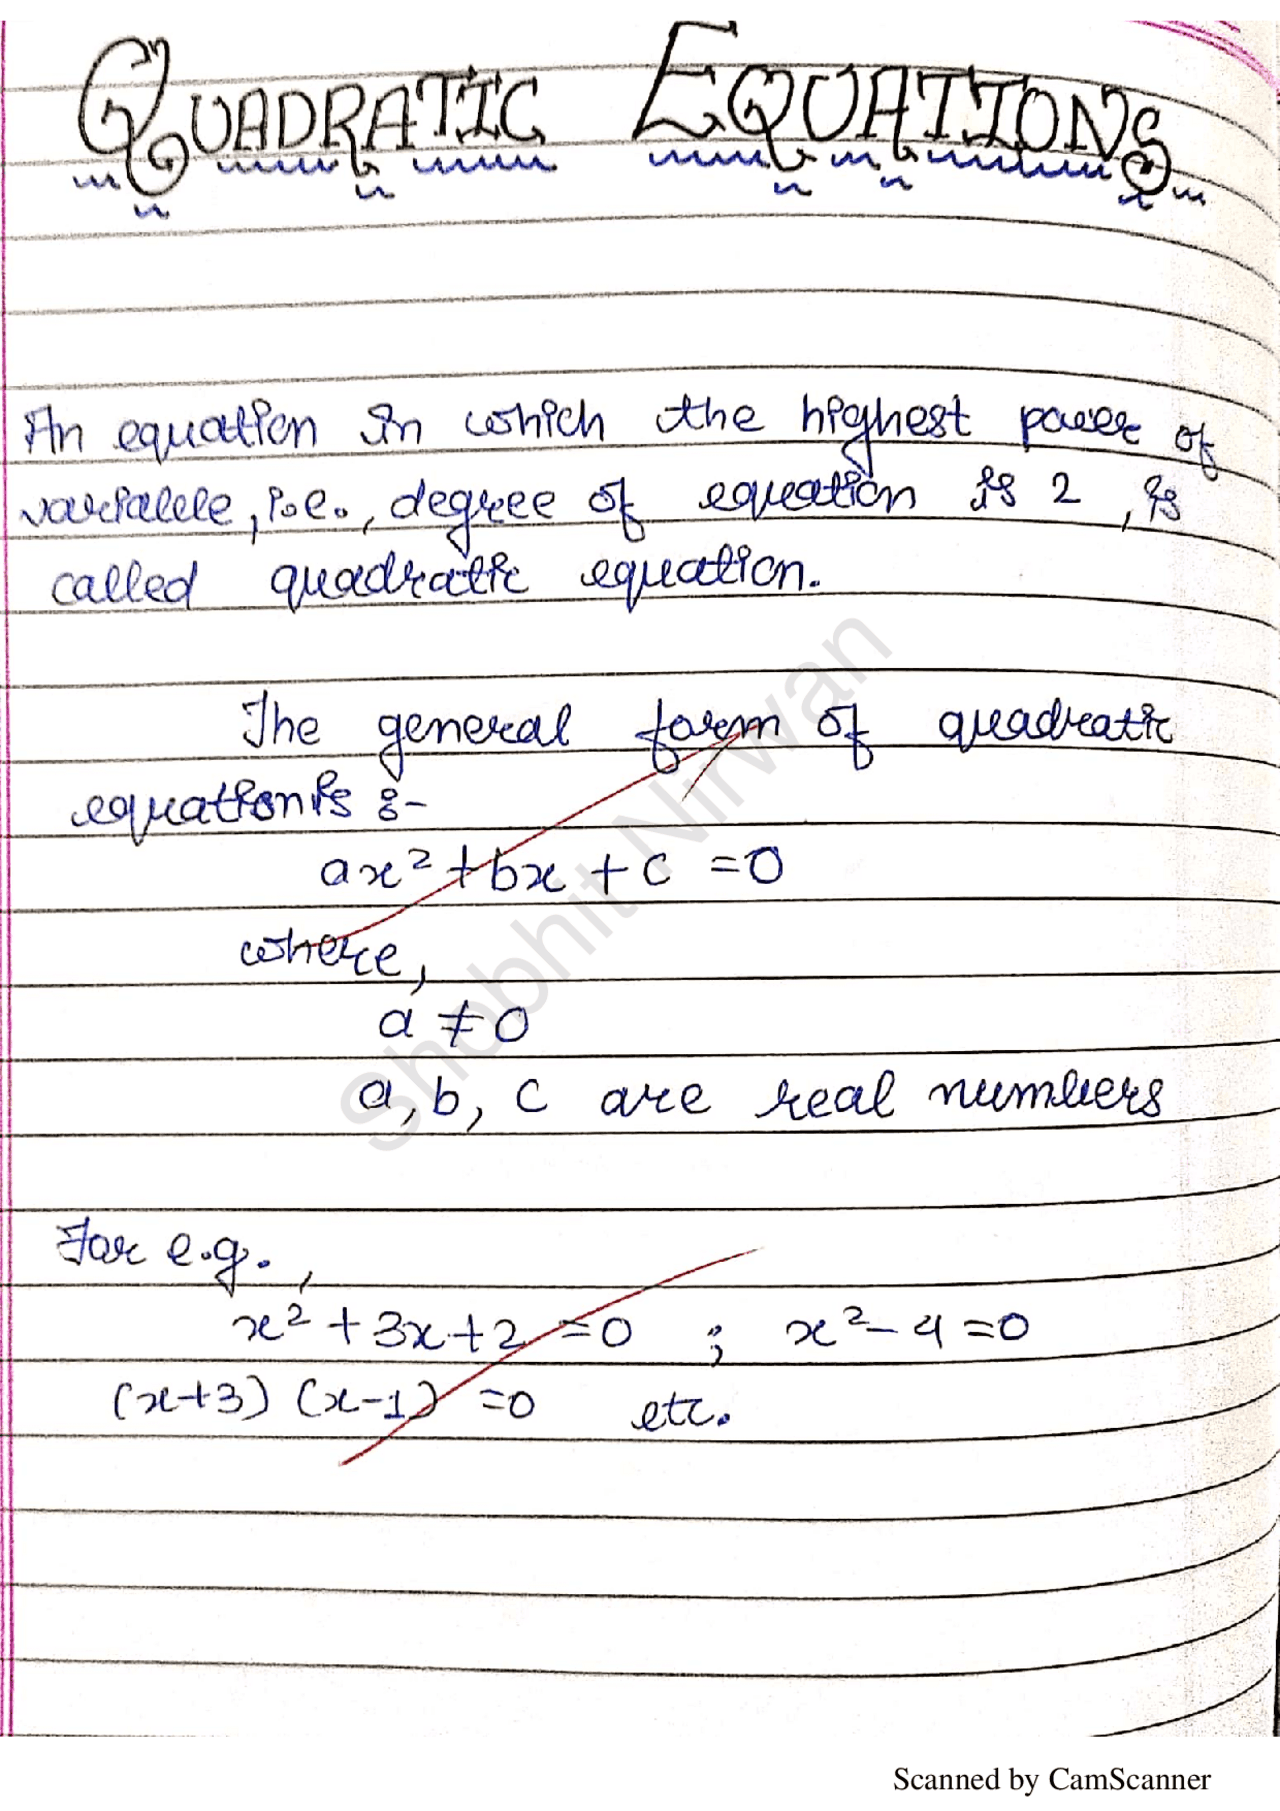 QUADRATIC EQUATIONS
An equation in which the highest power of
variable, i.e., degree of equation is 2, is
called quadratic equation.
The general form of quadratic
equation is :-
ax² + bx + c = 0
where,
a ≠ 0
a, b, c are real numbers
For e.g.,
x² + 3x + 2 = 0 ; x² - 4 = 0
(x+3) (x-1) = 0 etc.
Shobhit Nirwan
Scanned by CamScanner